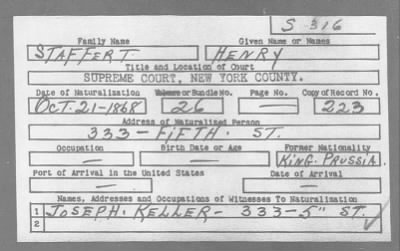 S 316
Family Name Given Name or Names
STAFFERT HENRY
Title and Location of Court
SUPREME COURT, NEW YORK COUNTY.
Date of Naturalization Volume or Bundle No. Page No. Copy of Record No.
OCT-21-1868 26 — 223
Address of Naturalized Person
333 - FIFTH. ST.
Occupation Birth Date or Age Former Nationality
— — KING. PRUSSIA.
Port of Arrival in the United States Date of Arrival
— —
Names, Addresses and Occupations of Witnesses To Naturalization
1 JOSEPH. KELLER - 333-5" ST.
2